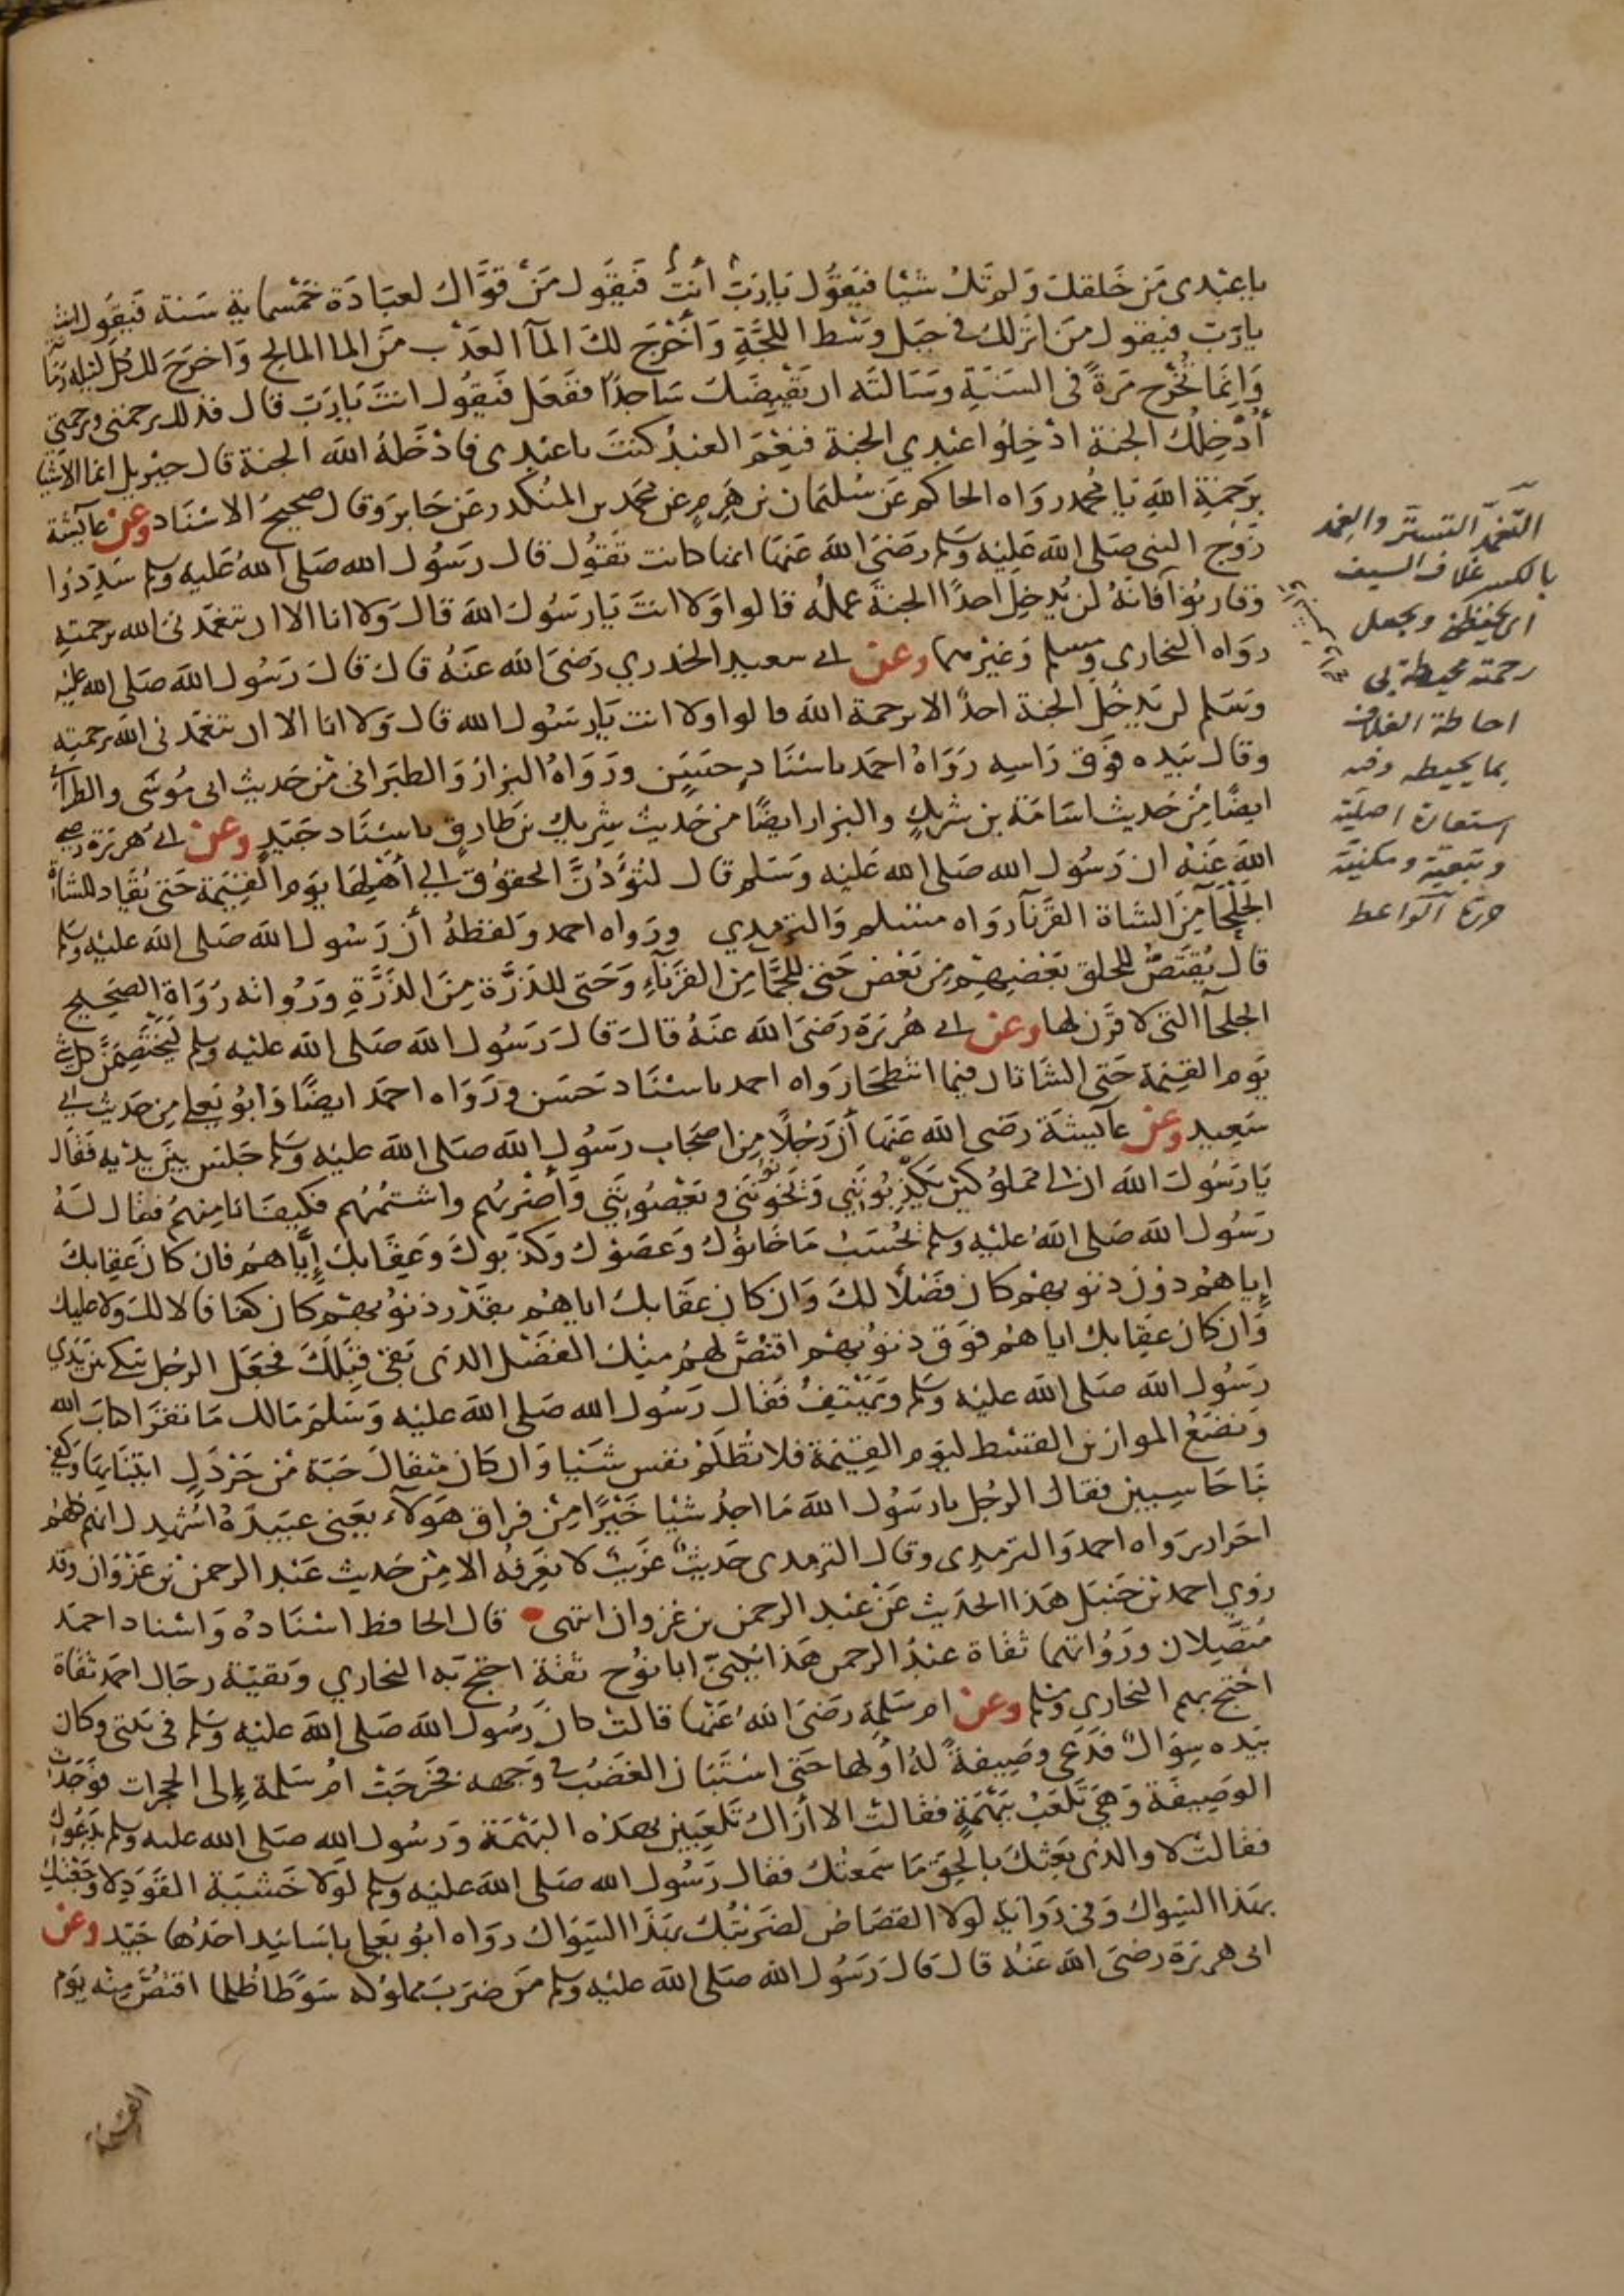 ياعبدى من خلقك ولم تك شيا فيقول يارب انت فيقول من قواك لعبادة خمسماية سنة فيقول انت
يارب فيقول من انزلك في جبل وسط اللجة وأخرج لك الماآ العذب من الما المالح واخرج لك كل ليلة رمانة
وانما تخرج مرة في السنة وسالته ان يقبضك ساجدا ففعل فيقول انت يارب قال فذلك برحمتي وبرحمتي
أدخلك الجنة ادخلوا عبدي الجنة فنعم العبد كنت ياعبدي فادخله الله الجنة قال جبريل انما الاشيا
برحمة الله يا محمد رواه الحاكم عن سليمان بن هرم عن محمد بن المنكدر عن جابر وقال صحيح الاسناد وعن عآيشة
زوج النبي صلى الله عليه وسلم رضي الله عنها انها كانت تقول قال رسول الله صلى الله عليه وسلم سددوا
وقاربوا فانه لن يدخل احدا الجنة عمله قالوا ولا انت يارسول الله قال ولا انا الا ان يتغمدني الله برحمته
رواه البخاري ومسلم وغيرهما وعن ابي سعيد الخدري رضي الله عنه قال قال رسول الله صلى الله عليه
وسلم لن يدخل الجنة احد الا برحمة الله قالوا ولا انت يارسول الله قال ولا انا الا ان يتغمدني الله برحمته
وقال بيده فوق راسه رواه احمد باسناد حسن ورواه البزار والطبراني من حديث ابي موسى والطبراني
ايضا من حديث اسامة بن شريك والبزار ايضا من حديث شريك بن طارق باسناد جيد وعن ابي هريرة رضي
الله عنه ان رسول الله صلى الله عليه وسلم قال لتؤدن الحقوق الي أهلها يوم القيمة حتى يقاد للشاة
الجلحآ من الشاة القرنآ رواه مسلم والترمدي ورواه احمد ولفظه أن رسول الله صلى الله عليه وسلم
قال يقتص للخلق بعضهم من بعض حتى للجما من القرنآء وحتى للذرة من الذرة ورواته رواة الصحيح
الجلحآ التي لا قرن لها وعن ابي هريرة رضي الله عنه قال قال رسول الله صلى الله عليه وسلم ليختصمن كل شي
يوم القيمة حتى الشاتان فيما انتطحا رواه احمد باسناد حسن ورواه احمد ايضا وابو يعلى من حديث ابي
سعيد وعن عآيشة رضي الله عنها أن رجلا من اصحاب رسول الله صلى الله عليه وسلم جلس بين يديه فقال
يارسول الله ان لي مملوكين يكذبونني ويخونونني ويعصونني وأضربهم واشتمهم فكيف انا منهم فقال له
رسول الله صلى الله عليه وسلم يحسب ما خانوك وعصوك وكذبوك وعقابك إياهم فان كان عقابك
إياهم دون ذنوبهم كان فضلا لك وان كان عقابك اياهم بقدر ذنوبهم كان كفافا لا لك ولا عليك
وان كان عقابك اياهم فوق ذنوبهم اقتص لهم منك الفضل الذى بقي قبلك فجعل الرجل يبكي بين يدي
رسول الله صلى الله عليه وسلم ويهتف فقال رسول الله صلى الله عليه وسلم مالك ما تقرا كتاب الله
ونضع الموازين القسط ليوم القيمة فلا تظلم نفس شيا وان كان مثقال حبة من خردل اتينا بها وكفى
بنا حاسبين فقال الرجل يارسول الله ما اجد شيا خيرا من فراق هولآء يعني عبيده اشهدك انهم كلهم
احرار رواه احمد والترمدي وقال الترمدي حديث غريب لا نعرفه الا من حديث عبد الرحمن بن غزوان وقد
روي احمد بن حنبل هذا الحديث عن عبد الرحمن بن غزوان انتهى قال الحافظ اسناده واسناد احمد
متصلان ورواتهما ثقاة عبد الرحمن هذا يكنى ابا نوح ثقة احتج به البخاري وبقية رجال احمد ثقاة
احتج بهم البخاري ومسلم وعن ام سلمة رضي الله عنها قالت كان رسول الله صلى الله عليه وسلم في بيتي وكان
بيده سواك فدعى وصيفة له او لها حتى استبان الغضب في وجهه فخرجت ام سلمة إلى الحجرات فوجدت
الوصيفة وهي تلعب ببهمة فقالت الا أراك تلعبين بهذه البهمة ورسول الله صلى الله عليه وسلم يدعوك
فقالت لا والذى بعثك بالحق ما سمعتك فقال رسول الله صلى الله عليه وسلم لولا خشية القود لاوجعتك
بهذا السواك وفي رواية لولا القصاص لضربتك بهذا السواك رواه ابو يعلى باسانيد احدها جيد وعن
ابى هريرة رضي الله عنه قال قال رسول الله صلى الله عليه وسلم من ضرب مملوكه سوطا ظلما اقتص منه يوم
القيمة
التغمد التستر والغمد
بالكسر غلاف السيف
اى يحفظني ويجعل
رحمته محيطة بي
احاطة الغلاف
بما يحيطه وفيه
استعارة اصلية
وتبعية ومكنية